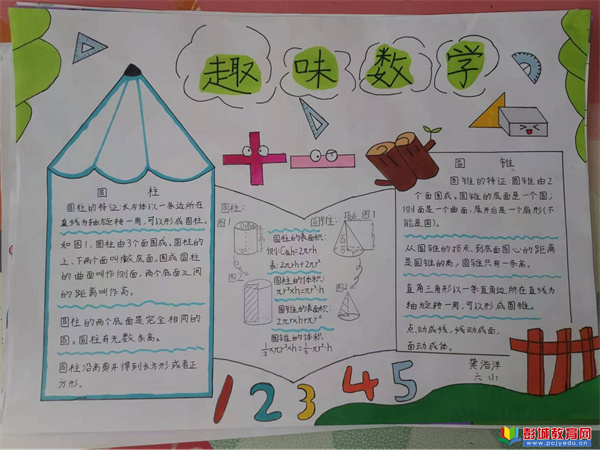 趣味数学
圆 柱
圆柱的特征:长方体以一条边所在
直线为轴旋转一周,可以形成圆柱。
如图1.圆柱由3个面围成。圆柱的
上、下两个面叫做底面。围成圆柱
的曲面叫作侧面。两个底面之间
的距离叫作高。
圆柱的两个底面是完全相同的
圆。圆柱有无数条高。
圆柱沿高剪开得到长方形或者正
方形。
圆柱:
图1
图2
圆柱的表面积:
圆柱的体积:
πr²×h=πr²·h
圆锥的表面积:
圆锥的体积:
⅓×πr²×h=⅓·πr²·h
圆锥:
图1
图2
圆 锥
圆锥的特征:圆锥由2
个面围成。圆锥的底面是一个圆;
侧面是一个曲面.展开后是一个扇形(不
能是圆)
从圆锥的顶点到底面圆心的距离
是圆锥的高,圆锥只有一条高。
直角三角形以一条直角边所在直线为
轴旋转一周,可以形成圆锥。
点动成线,线动成面,
面动成体。
龚浩洋
六小
1 2 3 4 5
彭城教育网
www.pcjyedu.cn